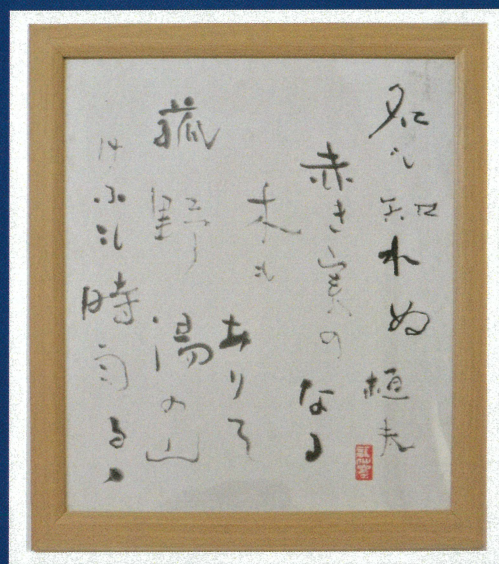 名も知れぬ
桓夫
赤き実のなる
木もありて
菰野湯の山
けふも時雨るゝ